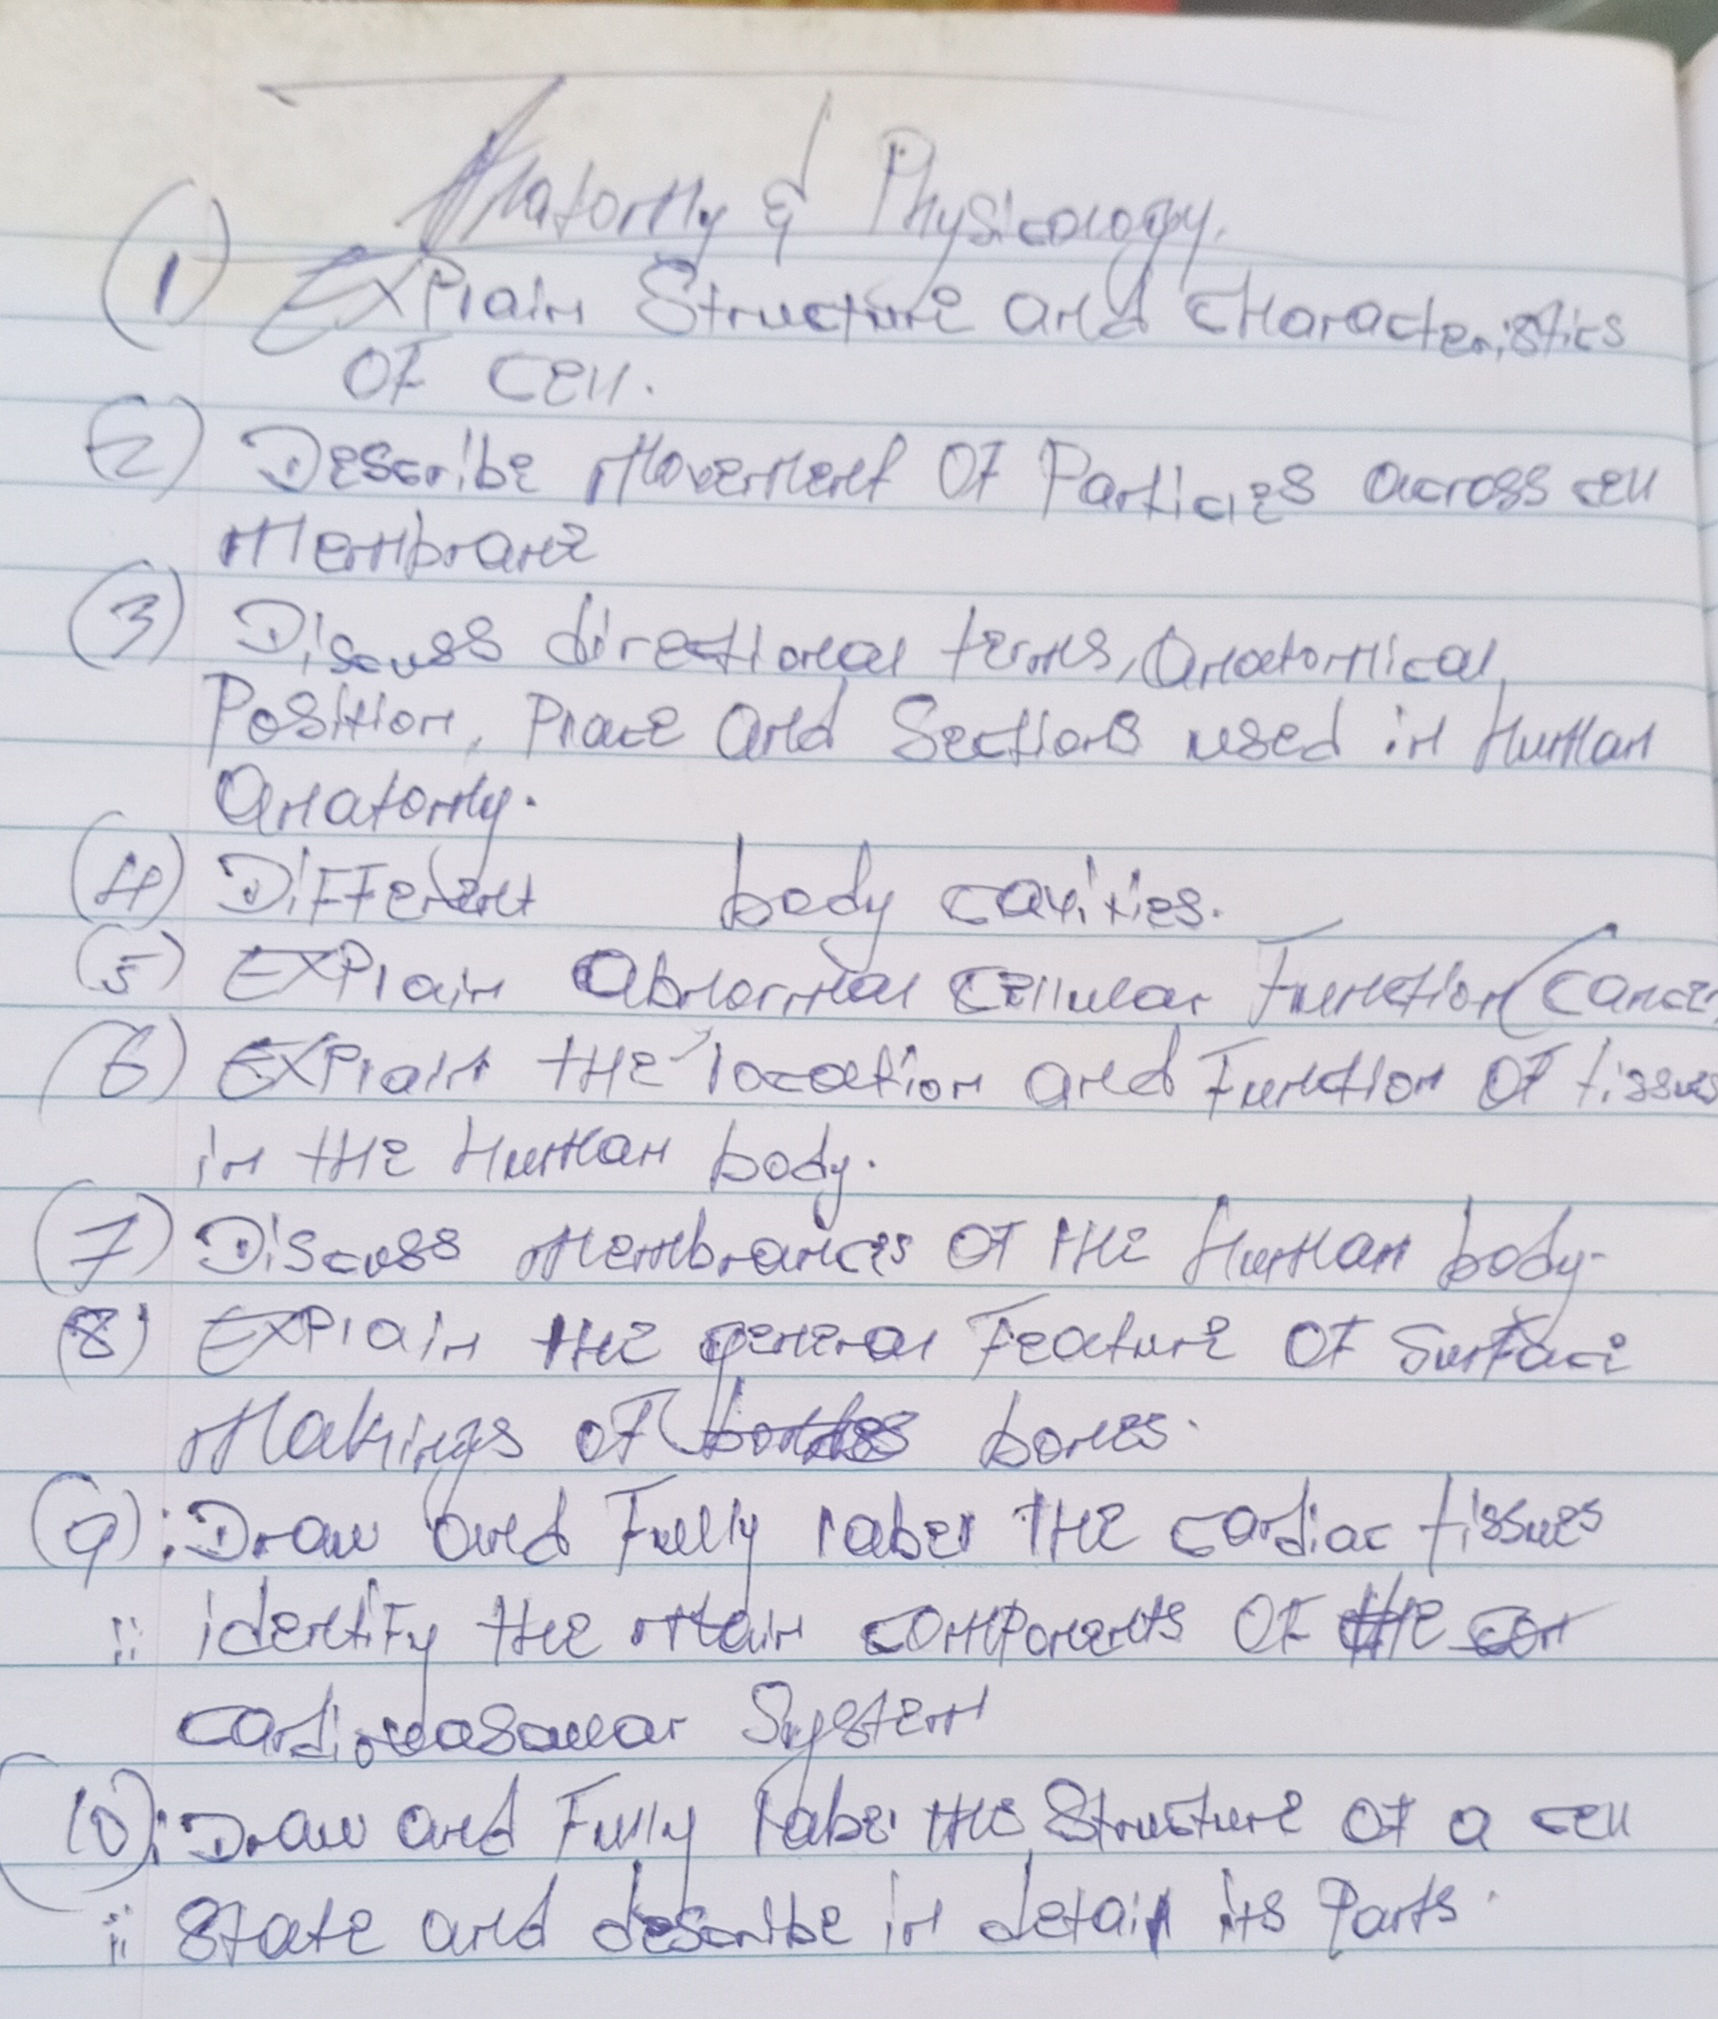 Anatomy & Physiology.
(1) Explain Structure and characteristics
of cell.
(2) Describe Movement of Particles across cell
Membrane
(3) Discuss directional terms, anatomical
Position, Plane and Sections used in Human
anatomy.
(4) Different body cavities.
(5) Explain abnormal cellular Function (cancer
(6) Explain the location and Function of tissues
in the Human body.
(7) Discuss Membranes of the Human body.
(8) Explain the general Feature of Surface
Makings of bones.
(9) i Draw and Fully label the cardiac tissues
ii identify the main components of the
cardiovascular System
(10) i Draw and Fully label the Structure of a cell
ii State and describe in detail its Parts.